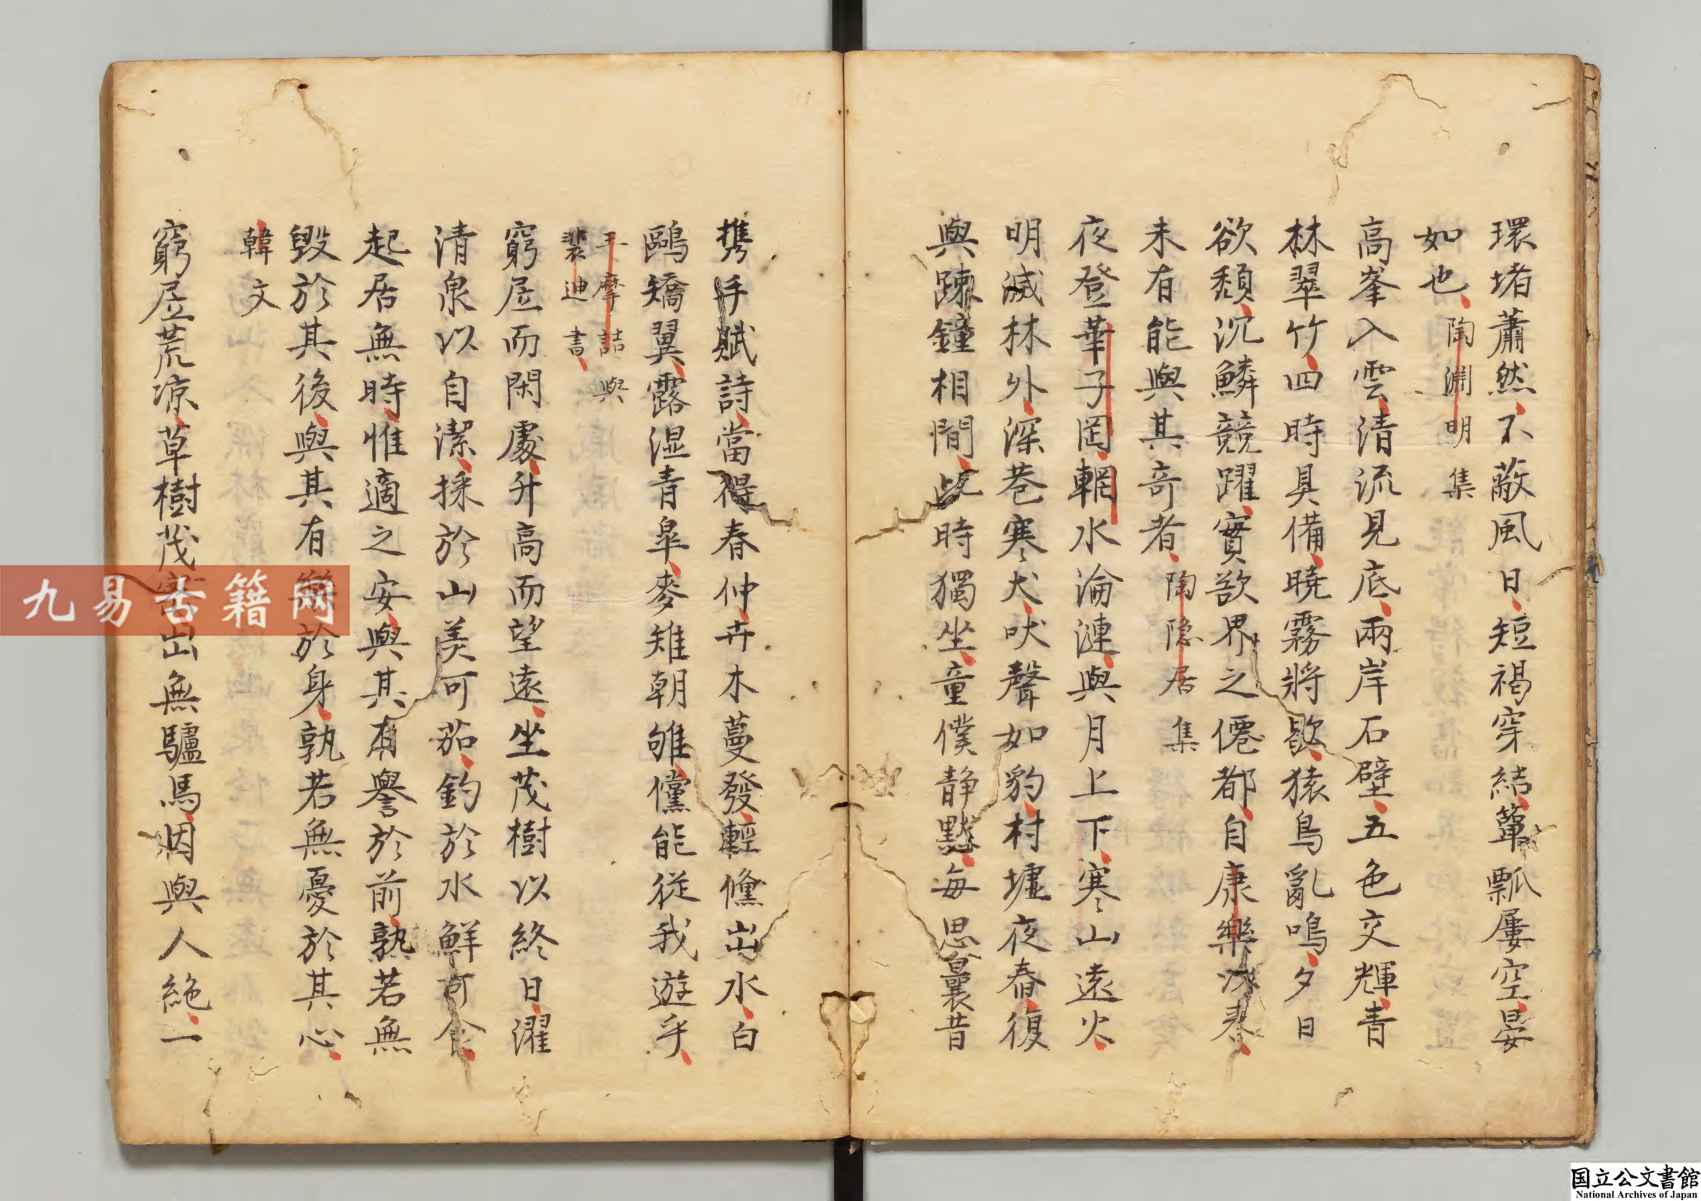 環堵蕭然、不蔽風日、短褐穿結、簞瓢屢空、晏
如也、陶淵明集
高峯入雲、清流見底、兩岸石壁、五色交輝、青
林翠竹、四時具備、曉霧將歇、猿鳥亂鳴、夕日
欲頹、沉鱗競躍、實欲界之僊都、自康樂以來、
未有能與其奇者、陶隐居集
夜登華子岡、輞水淪漣、與月上下、寒山遠火、
明滅林外、深巷寒犬、吠聲如豹、村墟夜舂、復
與踈鐘相間、此時獨坐、童僕静黙、每思曩昔
携手賦詩、當得春仲、卉木蔓發、輕儵出水、白
鷗矯翼、露湿青皐、麥雉朝雊、儻能從我遊乎、
王摩詰與
裴迪書、
窮居而閑處、升高而望遠、坐茂樹以終日、濯
清泉以自潔、採於山美可茹、釣於水鮮可食、
起居無時、惟適之安、與其有譽於前、孰若無
毀於其後、與其有樂於身、孰若無憂於其心、
韓文
窮居荒凉、草樹茂密、出無驢馬、因與人絶、一
九易古籍网
国立公文書館
National Archives of Japan